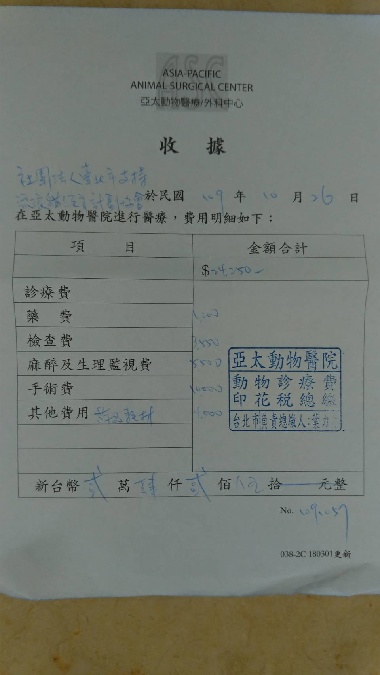 ASC
ASIA-PACIFIC
ANIMAL SURGICAL CENTER
亞太動物醫療/外科中心
收據
社團法人臺北市支持
於民國 109 年 10 月 26 日
在亞太動物醫院進行醫療，費用明細如下：
項目 金額合計
$24,250-
診療費
藥費
檢查費
麻醉及生理監視費
手術費
其他費用 4,000
亞太動物醫院
動物診療費
印花税總繳
台北市負責總繳人:葉力
新台幣 貳 萬 肆 仟 貳 佰 伍 拾 元整
No. 109.037
038-2C 180301更新